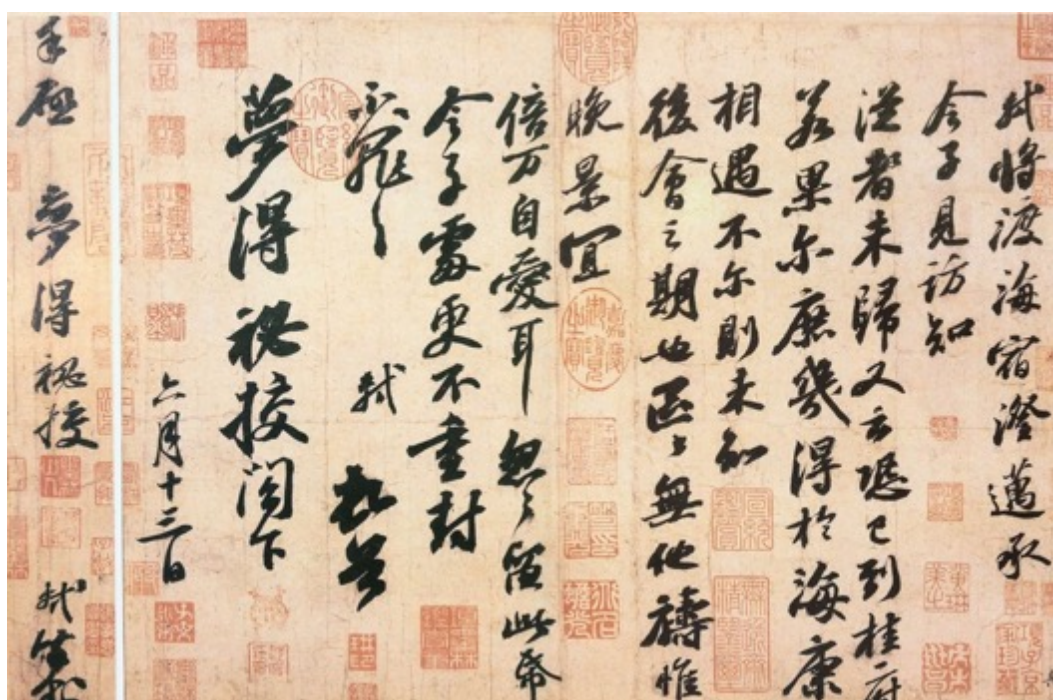 軾將渡海宿澄邁承
令子見訪知
從者未歸又云恐已到桂府
若果尔庶幾得於海康
相遇不尔則未知
後會之期也區〻無他禱惟
晚景宜
倍万自愛耳怱〻留此帋
令子處更不重封
不罪〻 軾 頓首
夢得祕校閤下
六月十三日
手啟 夢得祕校 軾